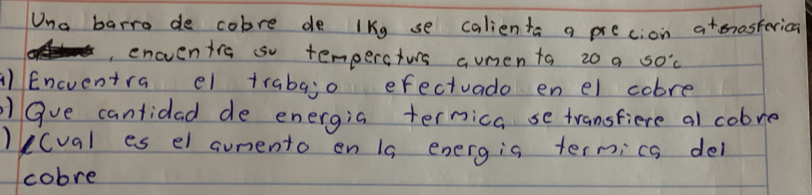 Una barra de cobre de 1Kg se calienta a precion atmosferica
, encuentra su temperatura aumenta 20 a 50°c
a) Encuentra el trabajo efectuado en el cobre
b) Que cantidad de energia termica se transfiere al cobre
) ¿Cual es el aumento en la energia termica del
cobre